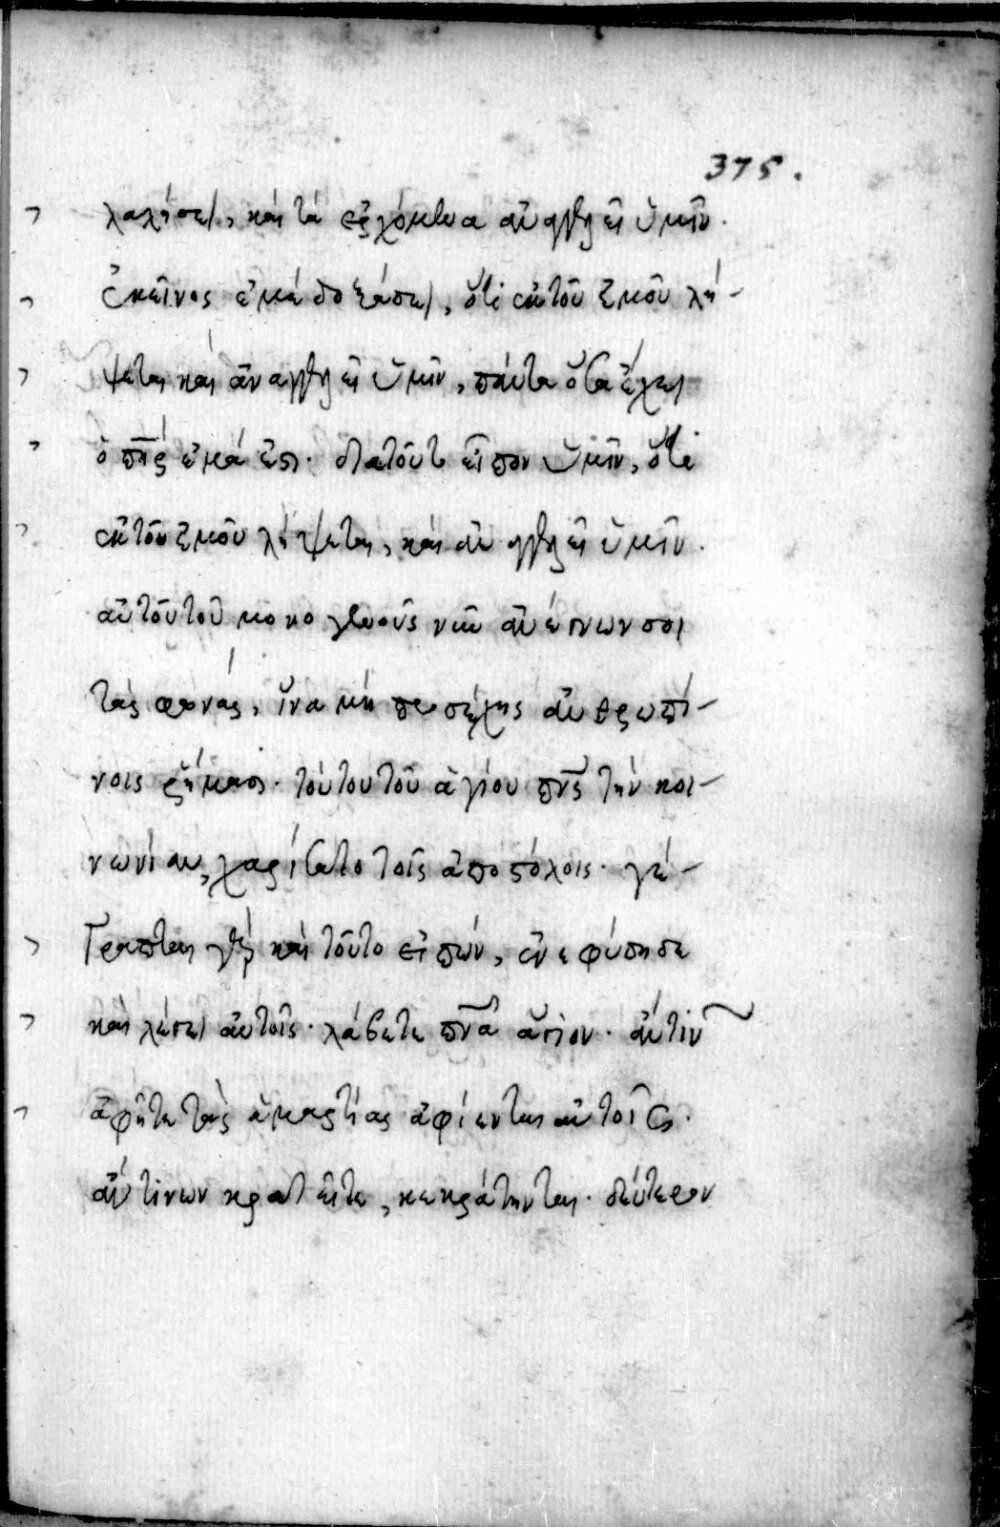 375.
λαλήσει, καὶ τὰ ἐρχόμενα ἀναγγελεῖ ὑμῖν.
ἐκεῖνος ἐμὲ δοξάσει, ὅτι ἐκ τοῦ ἐμοῦ λή-
ψεται καὶ ἀναγγελεῖ ὑμῖν, πάντα ὅσα ἔχει
ὁ πηρ ἐμά ἐστι. διατοῦτο εἶπον ὑμῖν, ὅτι
ἐκ τοῦ ἐμοῦ λήψεται, καὶ ἀναγγελεῖ ὑμῖν.
αὐτοῦ τοῦ μονογενοῦς νῦν ἀνέγνων σοι
τὰς φωνάς, ἵνα μὴ προσέχῃς ἀνθρωπί-
νοις ῥήμασι. τούτου τοῦ ἁγίου πνς τὴν κοι-
νωνίαν, χαρίσατο τοῖς ἀποστόλοις. γέ-
γραπται γὰρ καὶ τοῦτο εἰπών, ἐνεφύσησε
καὶ λέγει αὐτοῖς. λάβετε πνα ἅγιον. ἄν τιν
ἀφῆτε τὰς ἁμαρτίας ἀφίενται αὐτοῖς.
ἄν τινων κρατεῖτε, κεκράτηνται. δεύτερον